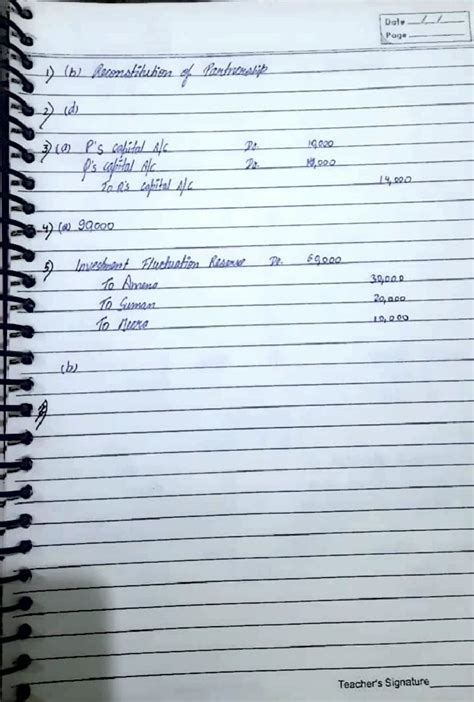 Date / /
Page
1) (b) Reconstitution of Partnership
2) (d)
3) (a) P's capital A/c Dr.
Q's capital A/c Dr.
To R's capital A/c 14,000
4) (a) 99000
5) Investment Fluctuation Reserve Dr.
To 30,000
To Suman 20,000
To 10,000
(b)
Teacher's Signature